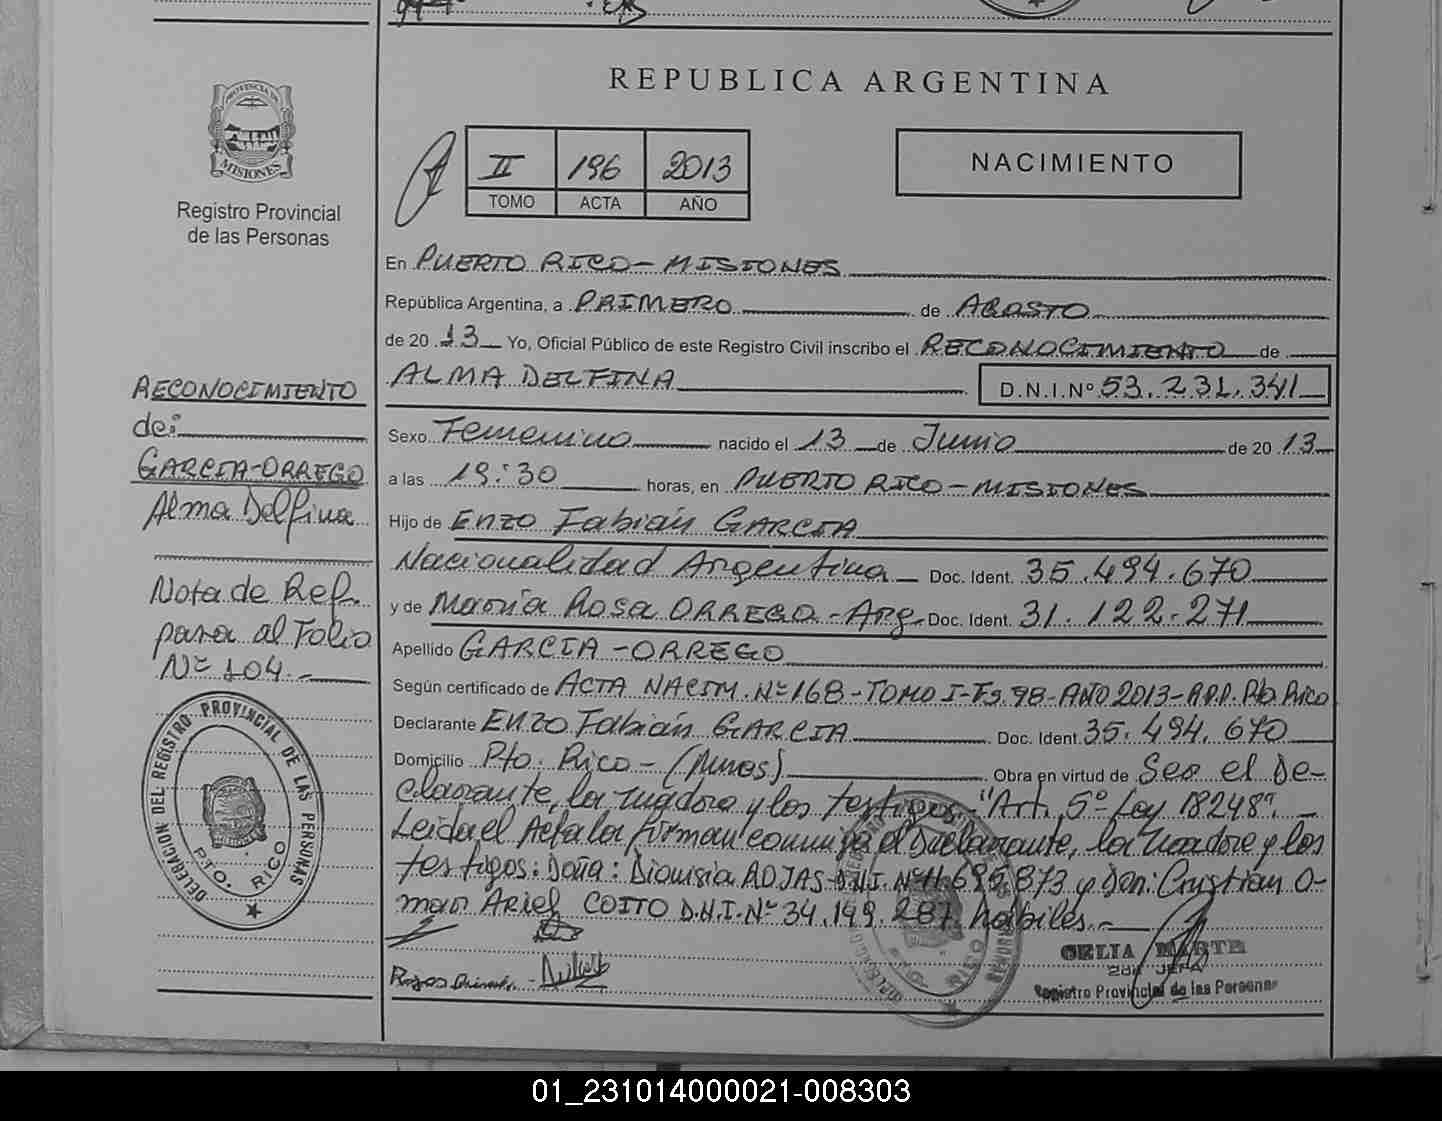 REPUBLICA ARGENTINA
PROVINCIA DE
MISIONES
Registro Provincial
de las Personas
II 196 2013
TOMO ACTA AÑO
NACIMIENTO
En PUERTO RICO - MISIONES
República Argentina, a PRIMERO de AGOSTO
de 20 13 Yo, Oficial Público de este Registro Civil inscribo el RECONOCIMIENTO de
ALMA DELFINA D.N.I.Nº 53.231.341
Sexo Femenino nacido el 13 de Junio de 20 13
a las 19:30 horas, en PUERTO RICO - MISIONES
Hijo de Enzo Fabián GARCIA
Nacionalidad Argentina Doc. Ident. 35.494.670
y de María Rosa ORREGO - Arg. Doc. Ident. 31.122.271
Apellido GARCIA - ORREGO
Según certificado de ACTA NACIM. Nº 168 - TOMO I - Fs. 98 - AÑO 2013 - R.P.P. Pto Rico
Declarante Enzo Fabián GARCIA Doc. Ident. 35.494.670
Domicilio Pto. Rico - (Mnes) Obra en virtud de Ser el De-
clarante, la madre y los testigos. "Art. 5º Ley 18248".
Leida el Acta la firman conmigo el Declarante, la madre y los
testigos: Doña: Dionisia ROJAS D.N.I. Nº 11.695.873 y Don: Cristian O-
mar Ariel COITO D.N.I. Nº 34.149.287 habiles.-
Rojas
CELIA
JEFA
Registro Provincial de las Personas
RECONOCIMIENTO
de:
GARCIA-ORREGO
Alma Delfina
Nota de Ref.
para al Folio
Nº 104.-
DELEGACION DEL REGISTRO PROVINCIAL DE LAS PERSONAS
PTO. RICO
01_231014000021-008303